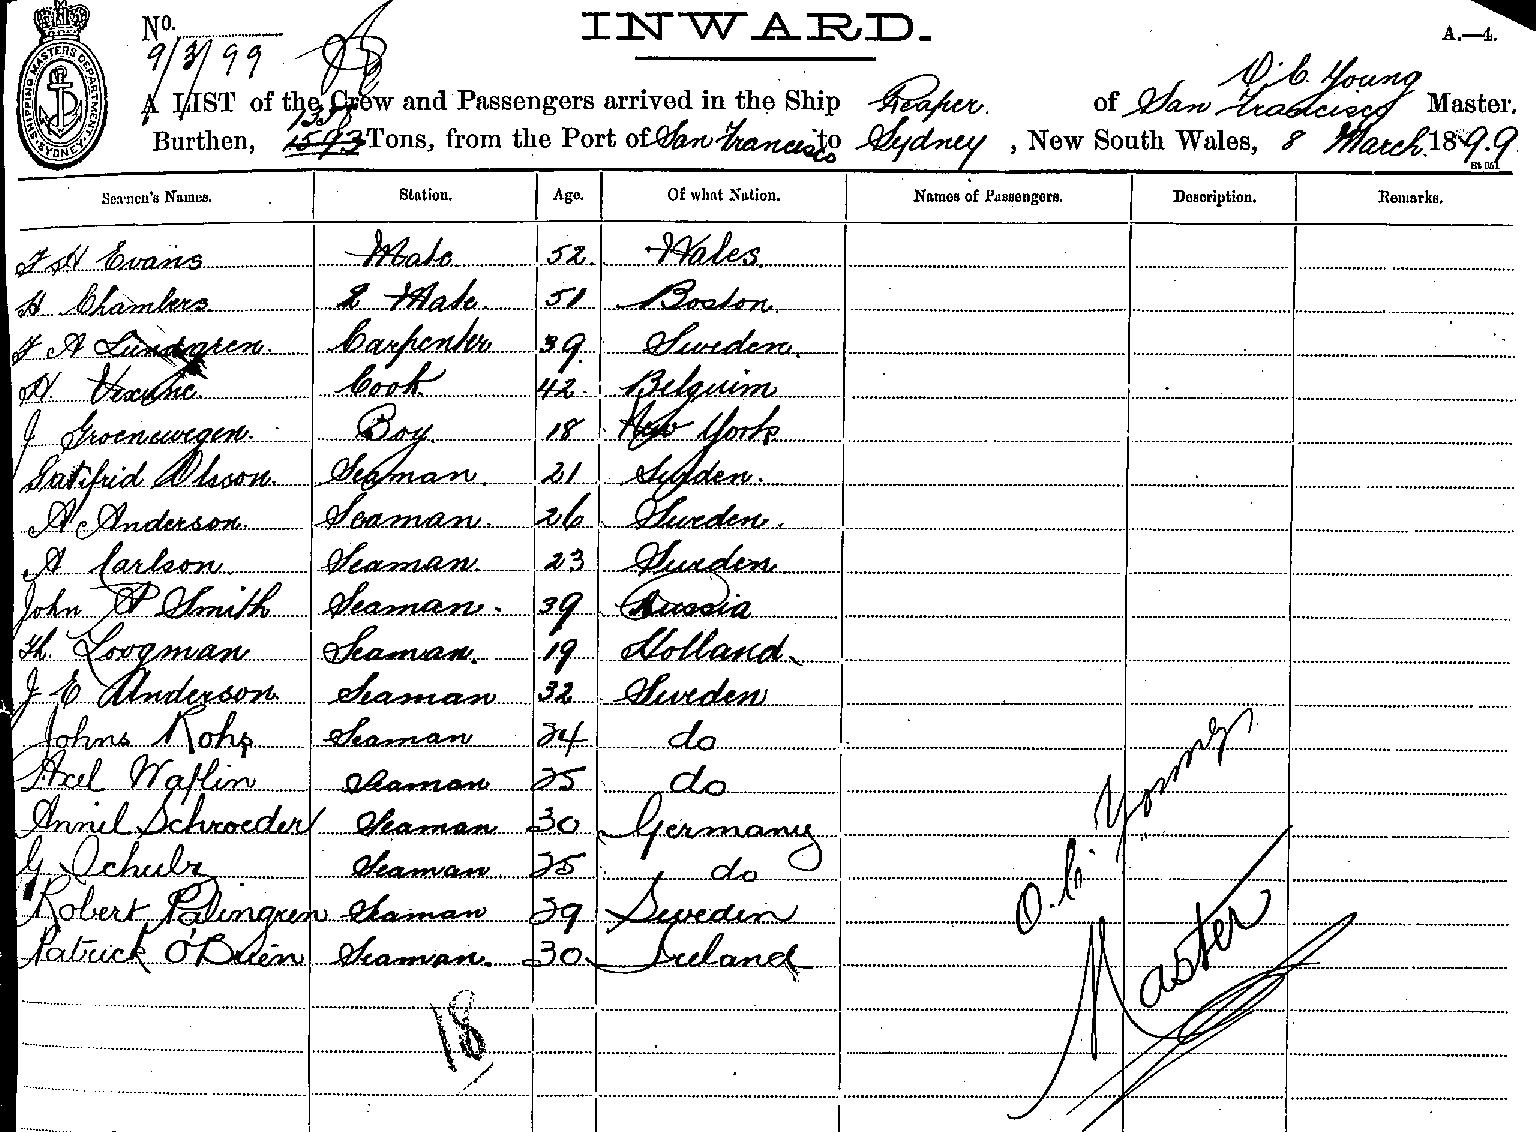 INWARD.
A.—4.
No.
9/3/99
SHIPPING MASTERS DEPARTMENT SYDNEY
O. C. Young
A LIST of the Crew and Passengers arrived in the Ship Reaper. of San Francisco Master,
1358
Burthen, 1593 Tons, from the Port of San Francisco to Sydney, New South Wales, 8 March 1899
Seamen's Names. Station. Age. Of what Nation. Names of Passengers. Description. Remarks.
Evans Mate 52. Wales.
H Chambers 2 Mate. 51 Boston
F A Lundgren. Carpenter 39. Sweden.
H. Cook 42. Belguim
J Groenewegen. Boy 18 New York
Olsson. Seaman. 21 Sweden.
A Anderson. Seaman. 26 Sweden.
A Carlson Seaman. 23 Sweden.
John P Smith Seaman. 39 Russia
Th. Loogman Seaman. 19 Holland.
J E Anderson. Seaman 32 Sweden
Johns Seaman 24 do
Axel Waflin Seaman 25 do
Schroeder Seaman 30 Germany
G Schulz Seaman 25 do
Robert Seaman 29 Sweden
Patrick O'Brien Seaman. 30. Ireland
18
O. C. Young
Master